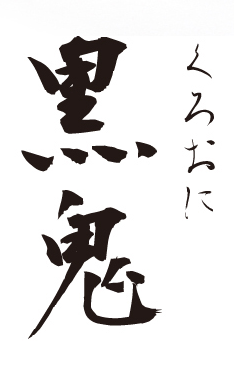 くろおに
黒鬼